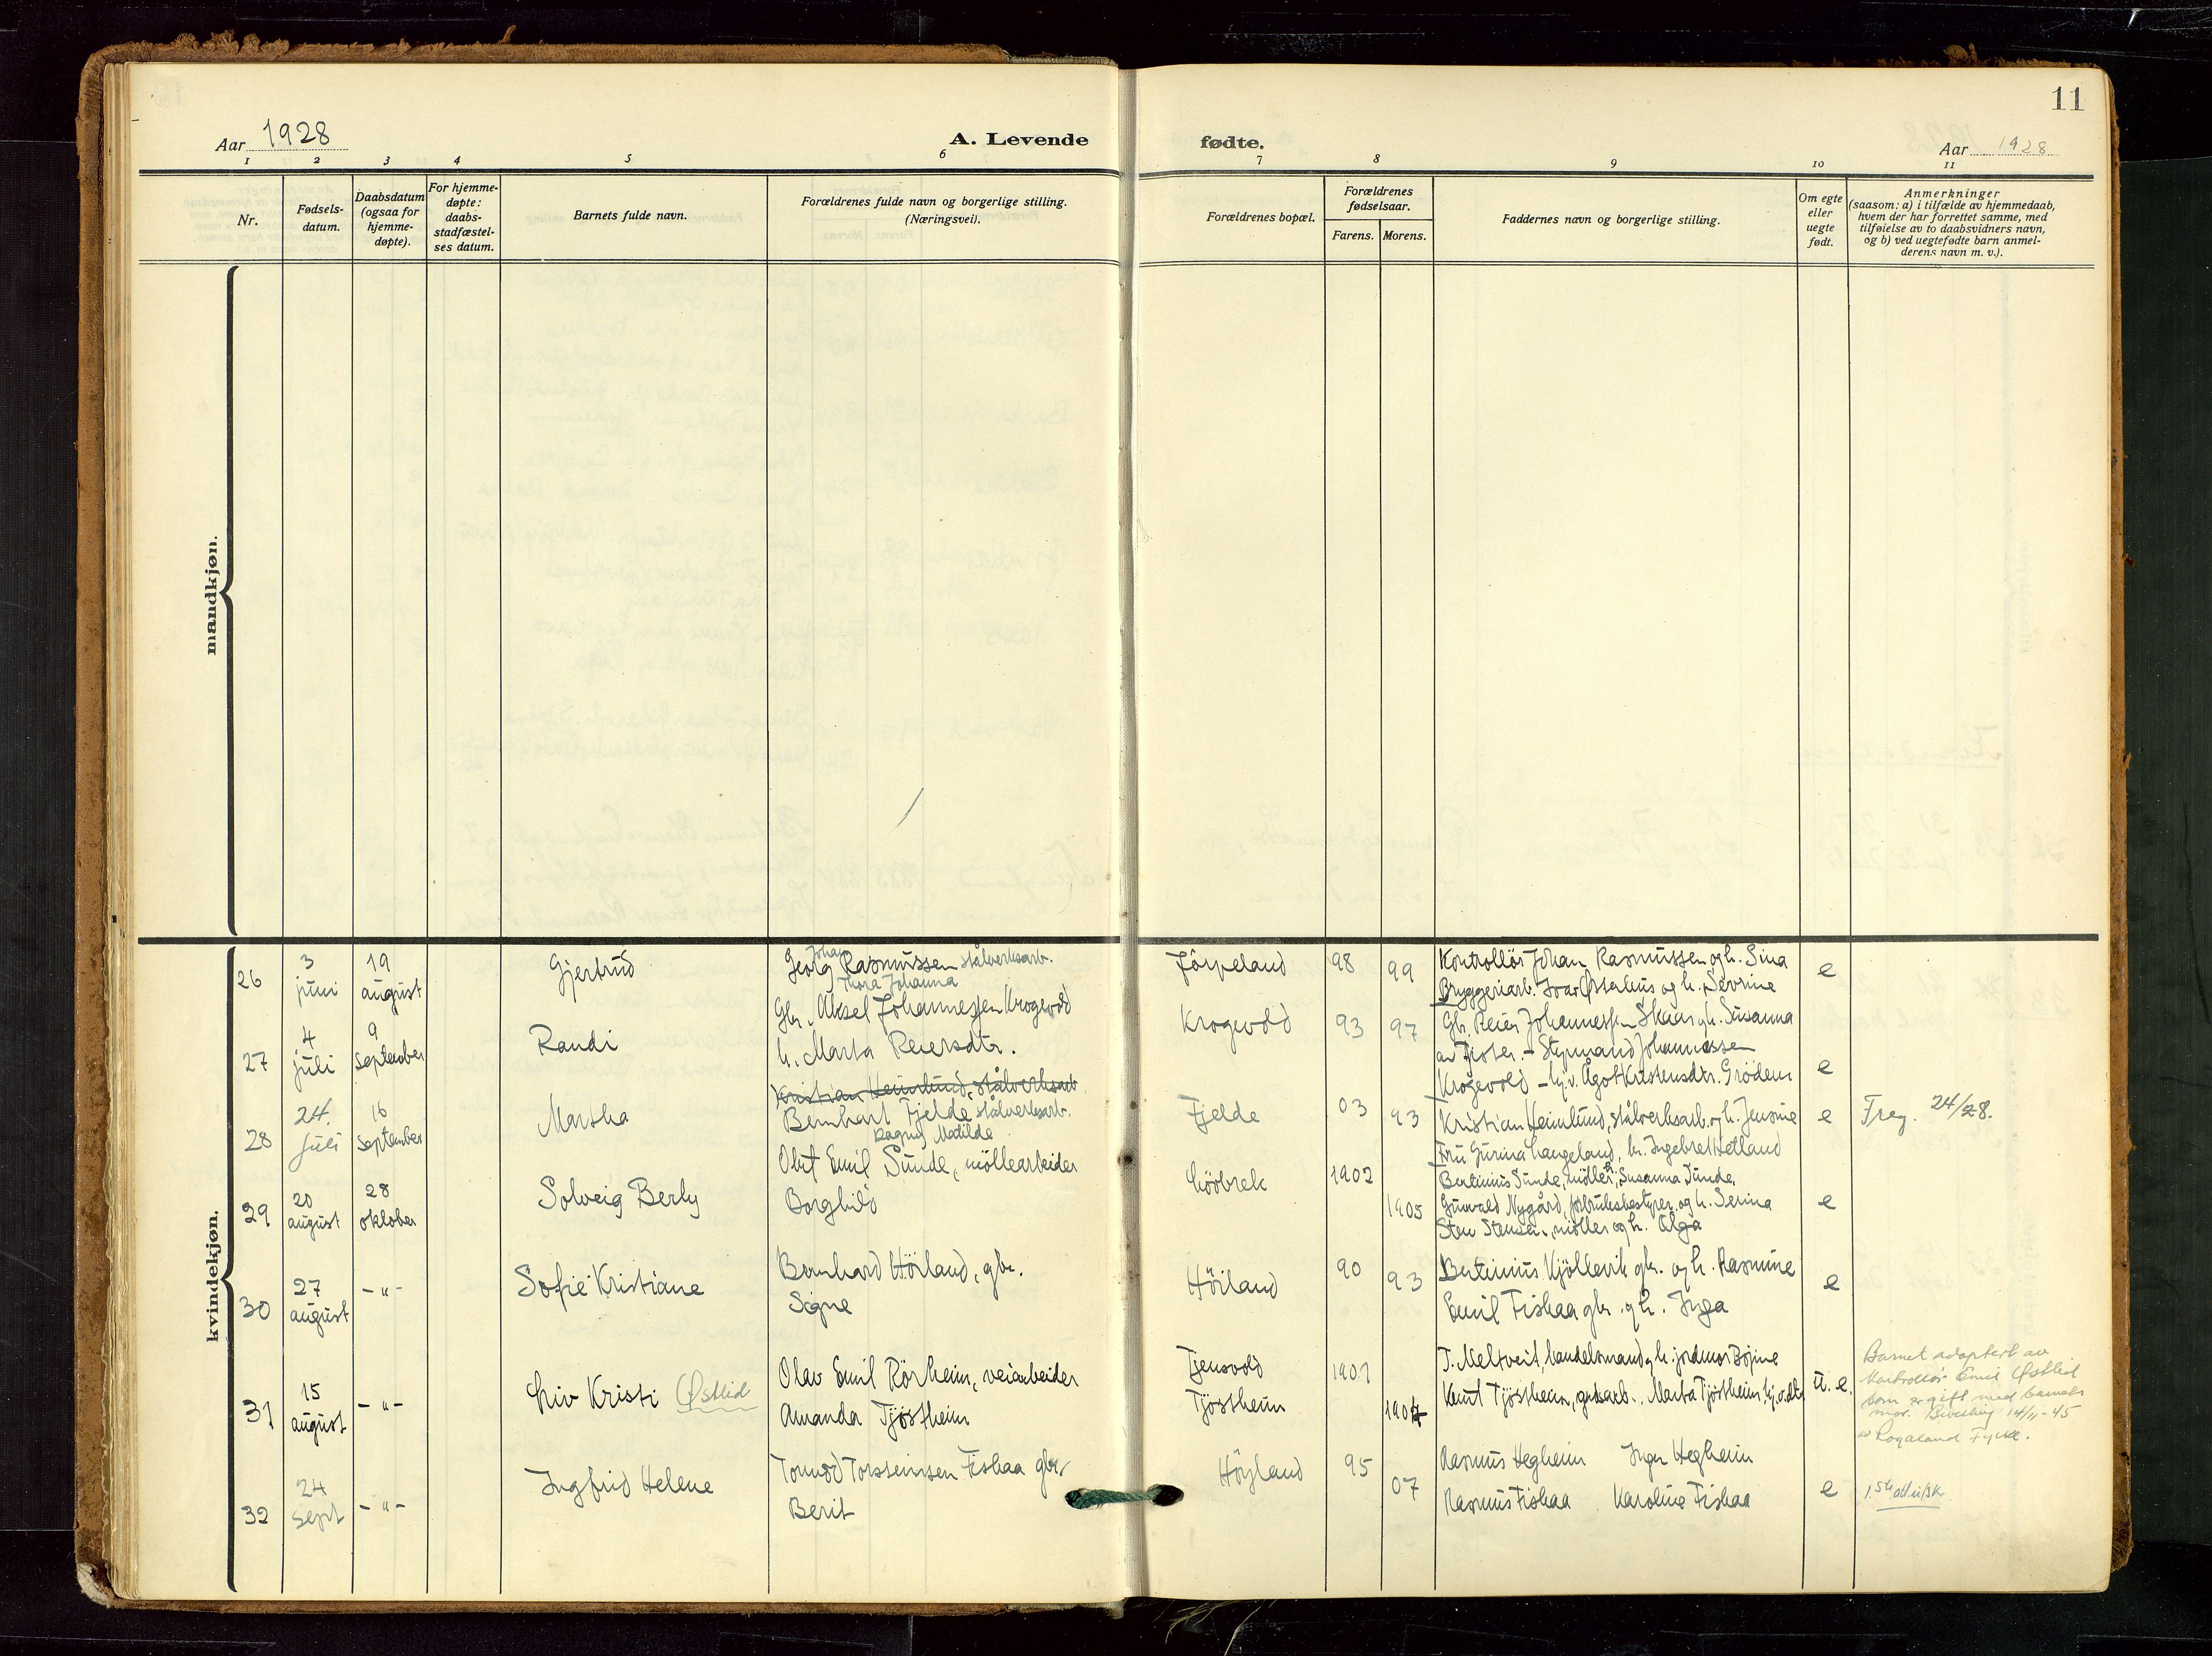 11
Aar 1928
A. Levende
fødte.
Aar 1928
1 2 3 4 5 6 7 8 9 10 11
Nr.
Fødsels-
datum.
Daabsdatum
(ogsaa for
hjemme-
døpte).
For hjemme-
døpte:
daabs-
stadfæstel-
ses datum.
Barnets fulde navn.
Forældrenes fulde navn og borgerlige stilling.
(Næringsvei).
Forældrenes bopæl.
Forældrenes
fødselsaar.
Farens. Morens.
Faddernes navn og borgerlige stilling.
Om egte
eller
uegte
født.
Anmerkninger
(saasom: a) i tilfælde av hjemmedaab,
hvem der har forrettet samme, med
tilføielse av to daabsvidners navn,
og b) ved uegtefødte barn anmel-
derens navn m. v.).
mandkjøn.
kvindekjøn.
26
3
juni
19
august
Gjertrud
Johan
Georg Rasmussen stålverksarb.
Thora Johanna
Jörpeland
98
99
Kontrollör Johan Rasmussen og h. Sina
Bryggeriarb. Ivar Østerhus og h. Severine
e
27
4
juli
9
september
Randi
Gbr. Aksel Johannessen Krogevold
h. Marta Reiersdtr.
Krogevold
93
97
Gbr. Reier Johannessen Skaar og h. Susanna
av Fister. - Styrmand Johannessen
Krogevold - hj.v. Ågot Kristensdtr. Grödem
e
28
24.
juli
16
september
Martha
Kristian Heimlund, stålverksarb
Bernhart Fjelde stålverksarb.
Ragna Matilde
Fjelde
03
93
Kristian Heimlund, stålverksarb. og h. Jensine
Fru Gurina Langeland, hr. Ingebret Hetland
e
Freg. 24/28.
29
20
august
28
oktober
Solveig Berly
Olaf Emil Sunde, möllearbeider
Borghild
Lööbrek
1902
1905
Bertinius Sunde, möller, Susanna Sunde,
Gunvald Nygård, forbruksbestyrer og h. Serina
Sten Stensen, möller og h. Olga
e
30
27
august
- " -
Sofie Kristiane
Bernhard Hörland, gbr.
Signe
Höiland
90
93
Bertinius Kjöllevik gbr. og h. Rasmine
Emil Fiskaa gbr. og h. Inga
e
31
15
august
- " -
Liv Kristi Østlid
Olav Emil Rörheim, veiarbeider
Amanda Tjöstheim
Tjensvold
Tjöstheim
1901
1907
T. Meltveit, handelsmand og h. jordmor Bojine
Knut Tjöstheim, gruvearb. Marta Tjöstheim, hj.v. dtr
u. e.
Barnet adoptert av
kontrollör Emil Østlid
som er gift med barnets
mor. Bevilling 14/11-45
av Rogaland Fylke.
32
24
sept
- " -
Ingfrid Helene
Tormod Torsteinsen Fiskaa gbr.
Berit
Höyland
95
07
Rasmus Hegheim Inger Hegheim
Rasmus Fiskaa Karoline Fiskaa
e